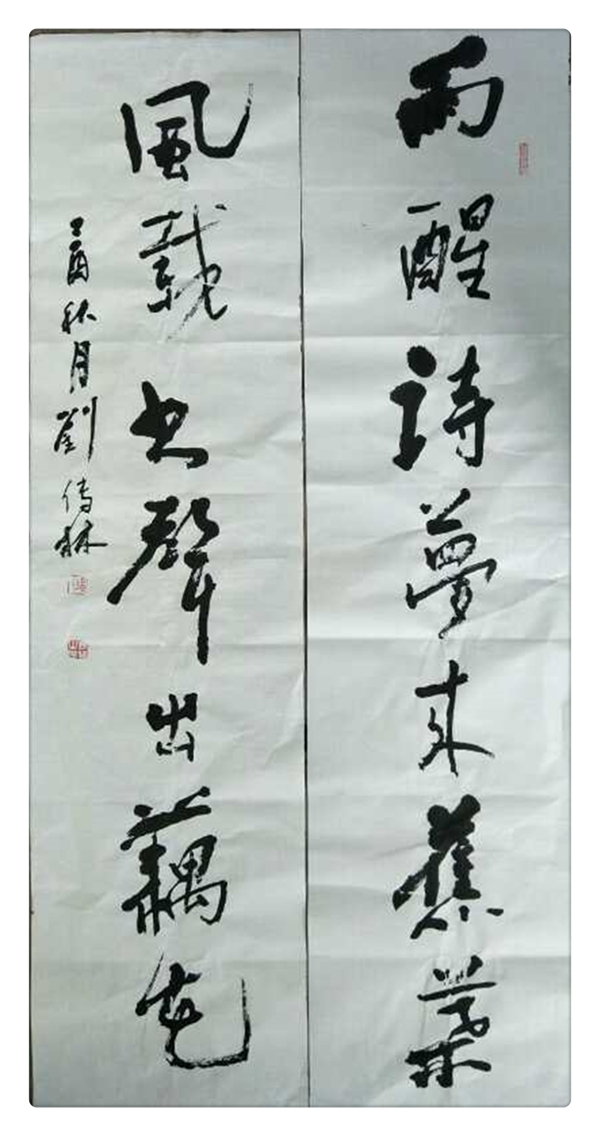 雨醒詩夢来蕉葉
風載书聲出藕花
丁酉秋月劉傳林